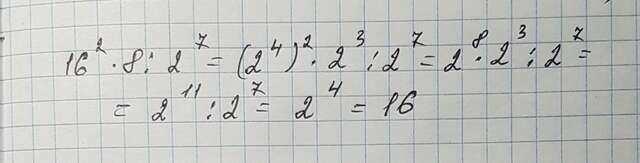 16² · 8 : 2⁷ = (2⁴)² · 2³ : 2⁷ = 2⁸ · 2³ : 2⁷ =
= 2¹¹ : 2⁷ = 2⁴ = 16